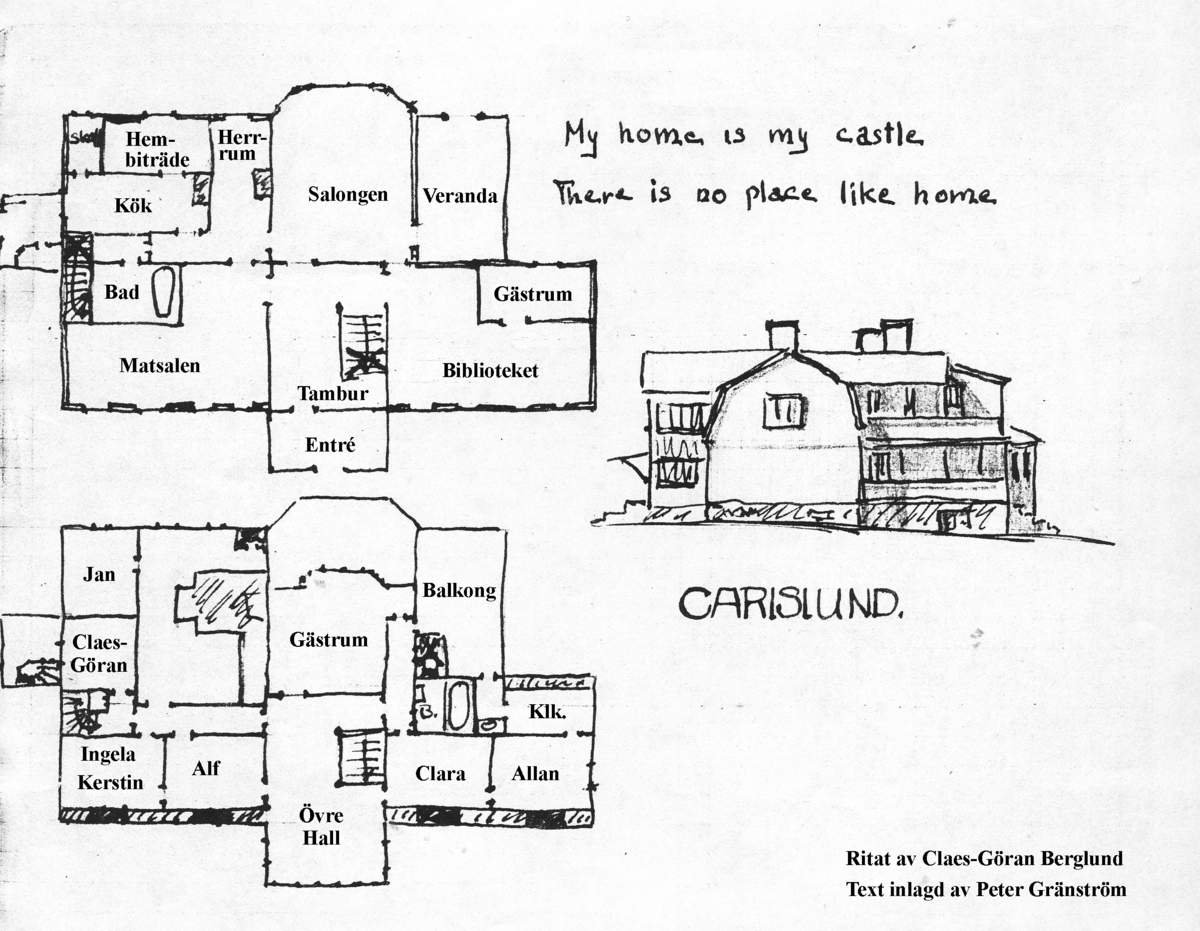 My home is my castle
There is no place like home
Hem-
biträde
Herr-
rum
Kök
Salongen
Veranda
Bad
Gästrum
Matsalen
Tambur
Biblioteket
Entré
CARLSLUND.
Jan
Balkong
Claes-
Göran
Gästrum
B.
Klk.
Ingela
Kerstin
Alf
Clara
Allan
Övre
Hall
Ritat av Claes-Göran Berglund
Text inlagd av Peter Gränström